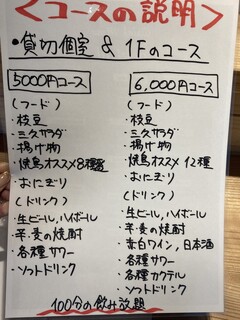 ＜コースの説明＞
・貸切個室 & 1Fのコース
5000円コース
(フード)
・枝豆
・三久サラダ
・揚げ物
・焼鳥オススメ8種
・おにぎり
(ドリンク)
・生ビール,ハイボール
・芋・麦の焼酎
・各種サワー
・ソフトドリンク
6,000円コース
(フード)
・枝豆
・三久サラダ
・揚げ物
・焼鳥オススメ12種
・おにぎり
(ドリンク)
・生ビール,ハイボール
・芋・麦の焼酎
・赤白ワイン,日本酒
・各種サワー
・各種カクテル
・ソフトドリンク
100分の飲み放題